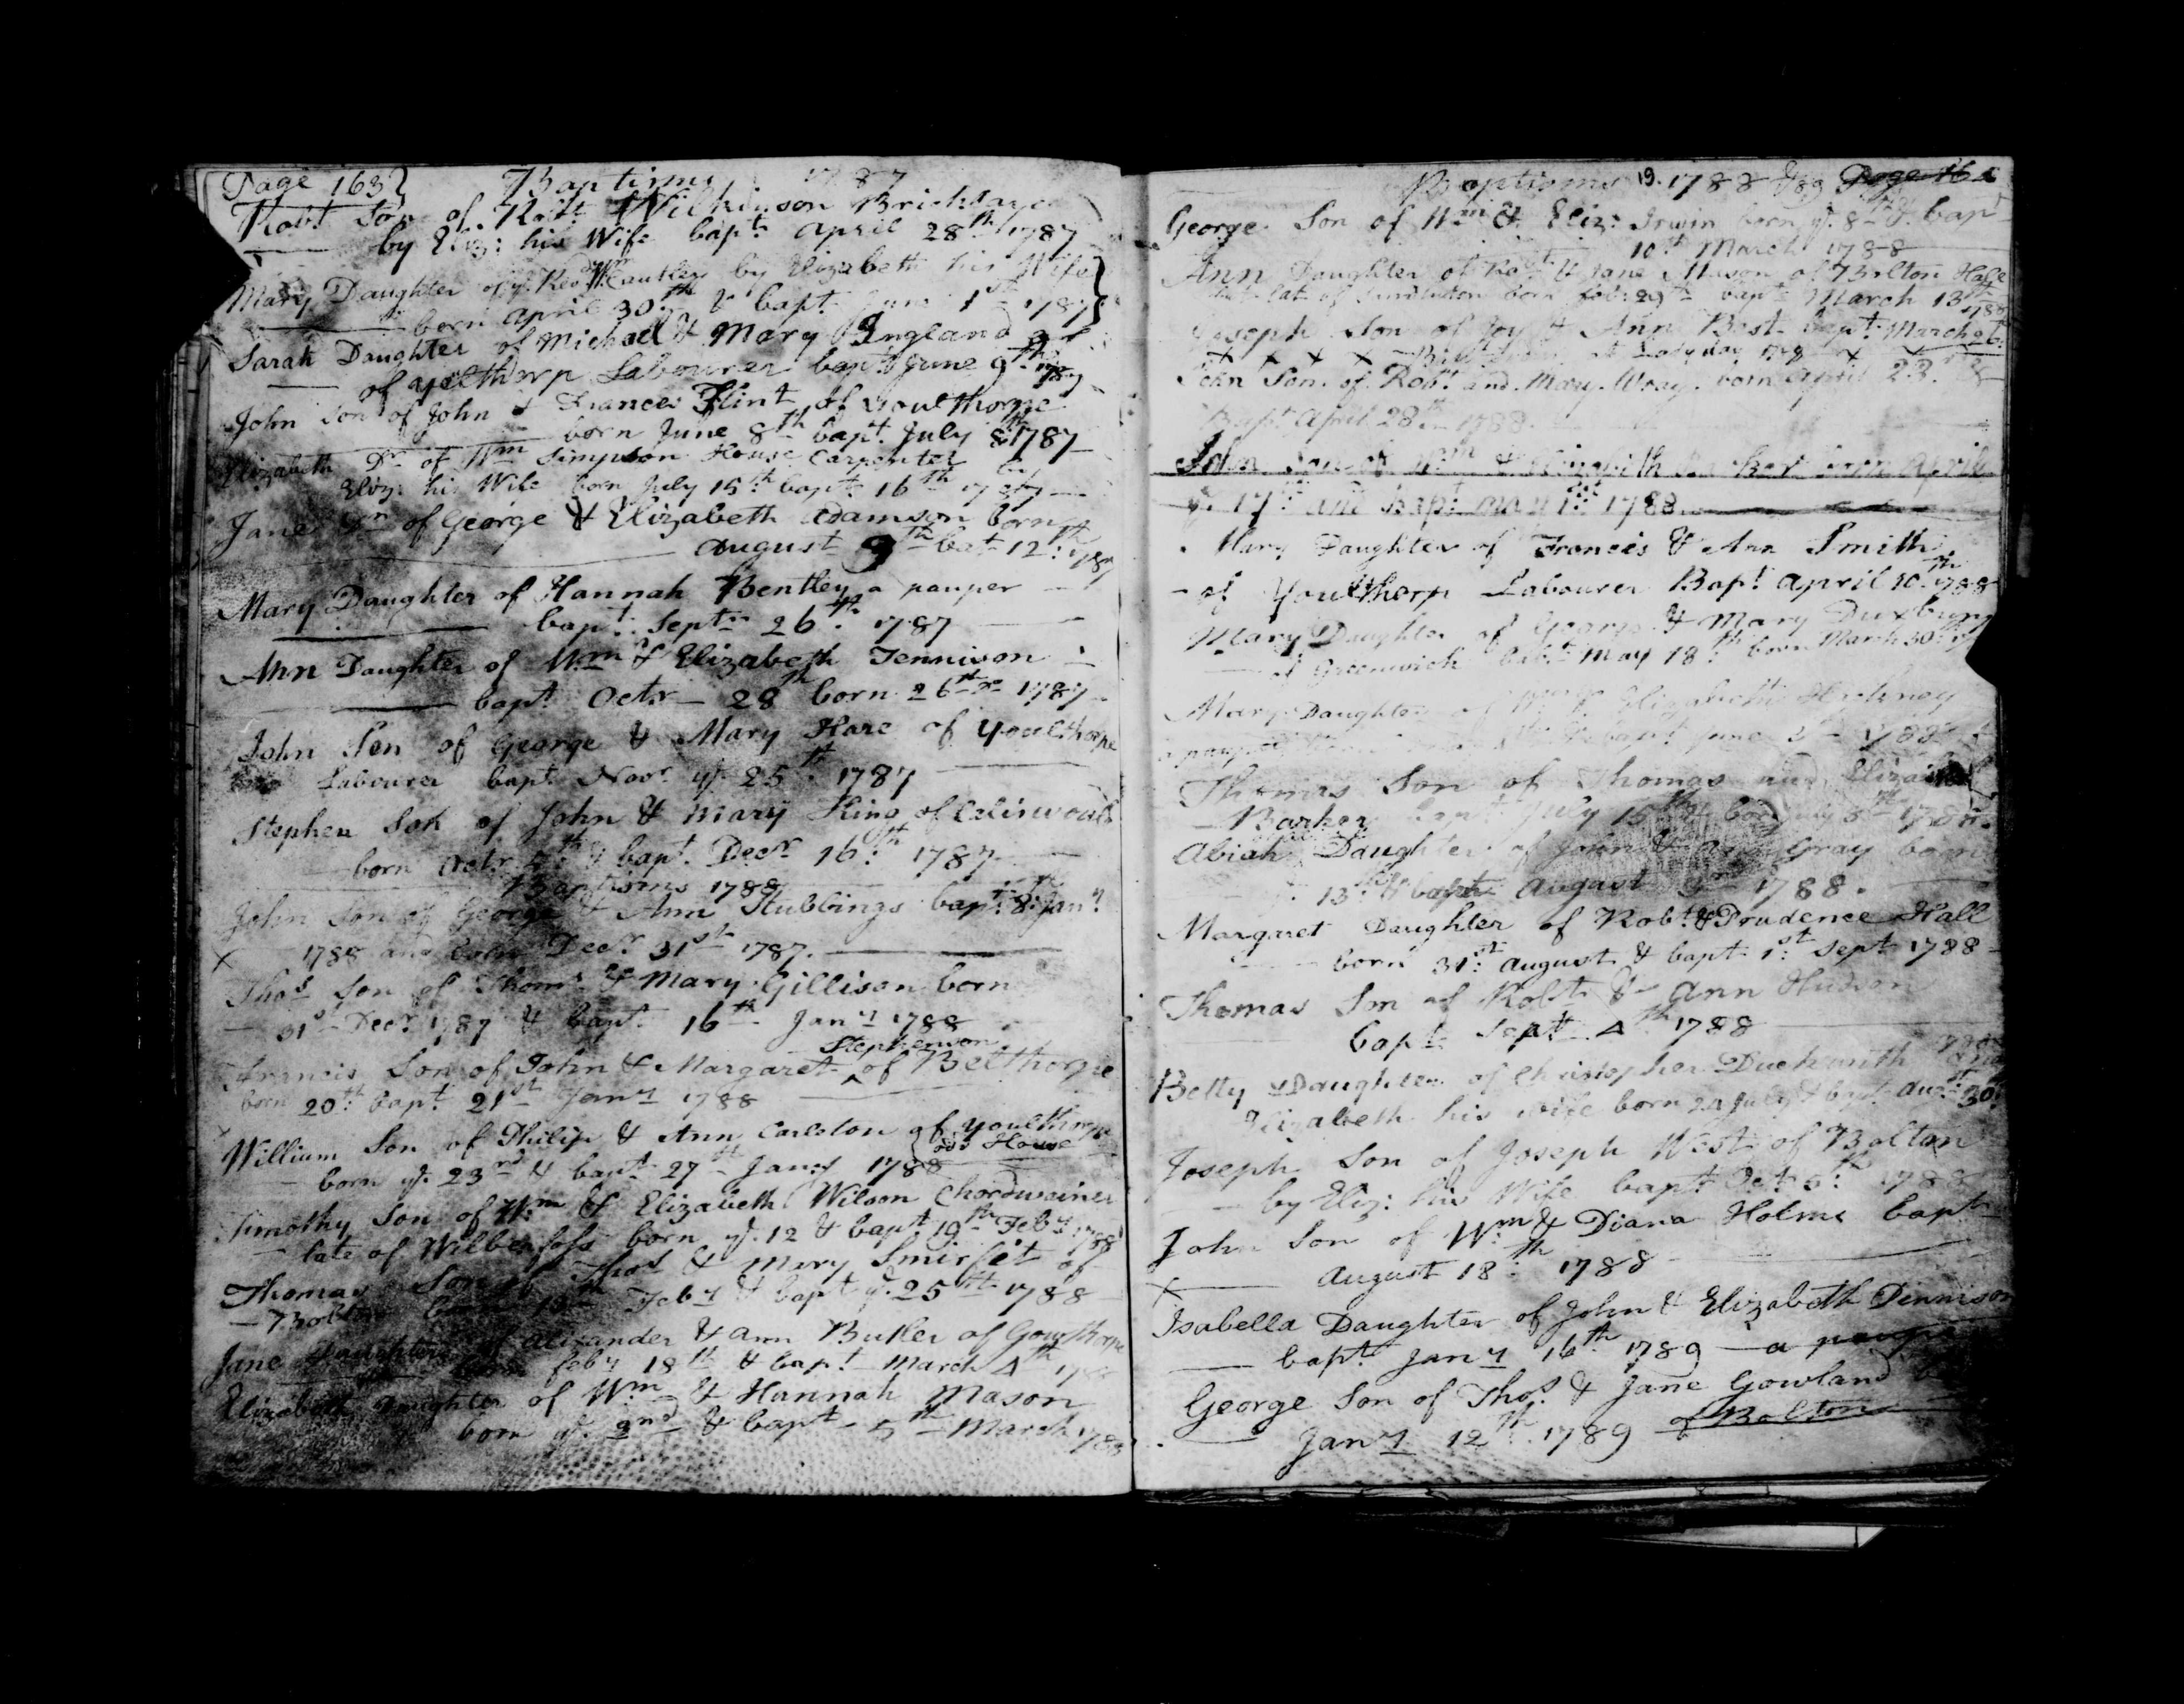 Page 163} Baptisms 1787
Robt Son of Robt Wilkinson Bricklayer
by Eliz: his Wife bapt. April 28th 1787
Mary Daughter of ye Revd Wm Cautley by Elizabeth his Wife}
born April 30th & bapt. June 1st 1787}
Sarah Daughter of Michael & Mary England
of Yelthorp Labourer bapt. June 9th
John Son of John & Frances Flint of Youlthorpe
born June 8th bapt. July 8th 1787
Elizabeth Dr of Wm Simpson House Carpenter by
Eliz: his Wife born July 15th bapt. 16th 1787
Jane Dr of George & Elizabeth Adamson born
August 9th bat 12th: 1787
Mary Daughter of Hannah Bentley a pauper
bapt. Septr 26th: 1787
Ann Daughter of Wm & Elizabeth Tennison
bapt Octr 28th born 26th Do 1787
John Son of George & Mary Hare of Youlthorpe
Labourer bapt. Novr ye 25th: 1787
Stephen Son of John & Mary King of
born Octr & bapt. Decr 16th: 1787
Baptisms 1788
John Son of George & Ann Stubbings bapt. 8th: Jany
X 1788 and born Decr 31st 1787.
Thos Son of Thoms & Mary Gillison born
31st Decr 1787 & bapt. 16th Jany 1788
Stephenson
Francis Son of John & Margaret ^ of Belthorpe
born 20th: bapt. 21st Jany 1788
William Son of Philip & Ann Carleton of Youlthorpe
born ye 23rd & bapt 27th Jany 1788 { odd House
Timothy Son of Wm & Elizabeth Wilson Chordwainer
late of Wilberfoss born ye 12 & bapt 19th Feby 1788
Thomas Son of Thos & Mary Smirfit of
Bolton Feby & bapt ye 25th 1788
Jane Daughter of Alexander & Ann Butler of Gowthorpe
Feby 18th & bapt. March 4th
Elizabeth Daughter of Wm & Hannah Mason
born ye 2nd & bapt 5th March 1788
Baptisms 19. 1788 & 89 Page 16
George Son of Wm & Eliz: Irwin born ye 8th & bapt
10th March 1788
Ann Daughter of Robt & Jane Mason of Bolton Hall
late of born feb: 29th bapt March 13th 1788
Joseph Son of & Ann Best bapt. March 26
X X X X Lady day X
John Son of Robt and Mary Wray born April 23.
Bapt April 28th 1788.
John Son of Wm & Elizabeth born April
ye 17th and Bapt. May 1st 1788
Mary Daughter of Francis & Ann Smith
of Youlthorp Labourer Bapt April 10th 1788
Mary Daughter of George & Mary Duxbury
of Greenwich bapt. May 18th born March 30th
Mary Daughter of Elizabeth
a pauper bapt June 1788
Thomas Son of Thomas and Elizabeth
Barker bapt July 15th & born July 5th 1788.
Abiah Daughter of John & Gray born
13th & bapt. August 1788.
Margaret Daughter of Robt & Prudence Hall
born 31st: August & bapt. 1st Sept 1788
Thomas Son of Robt & Ann Hudson
bapt. Sept. 4th 1788
Betty Daughter of Christopher Duckworth and
Elizabeth his wife born 24 July & bapt. Augt 30th
Joseph Son of Joseph West of Bolton
by Eliz: his Wife bapt Oct 5th: 1788
John Son of Wm & Diana Holms bapt
X August 18th: 1788
Isabella Daughter of John & Elizabeth Dennison
bapt. Jany 16th 1789 a pauper
George Son of Thos & Jane Gowland
Jany 12th: 1789 of Bolton